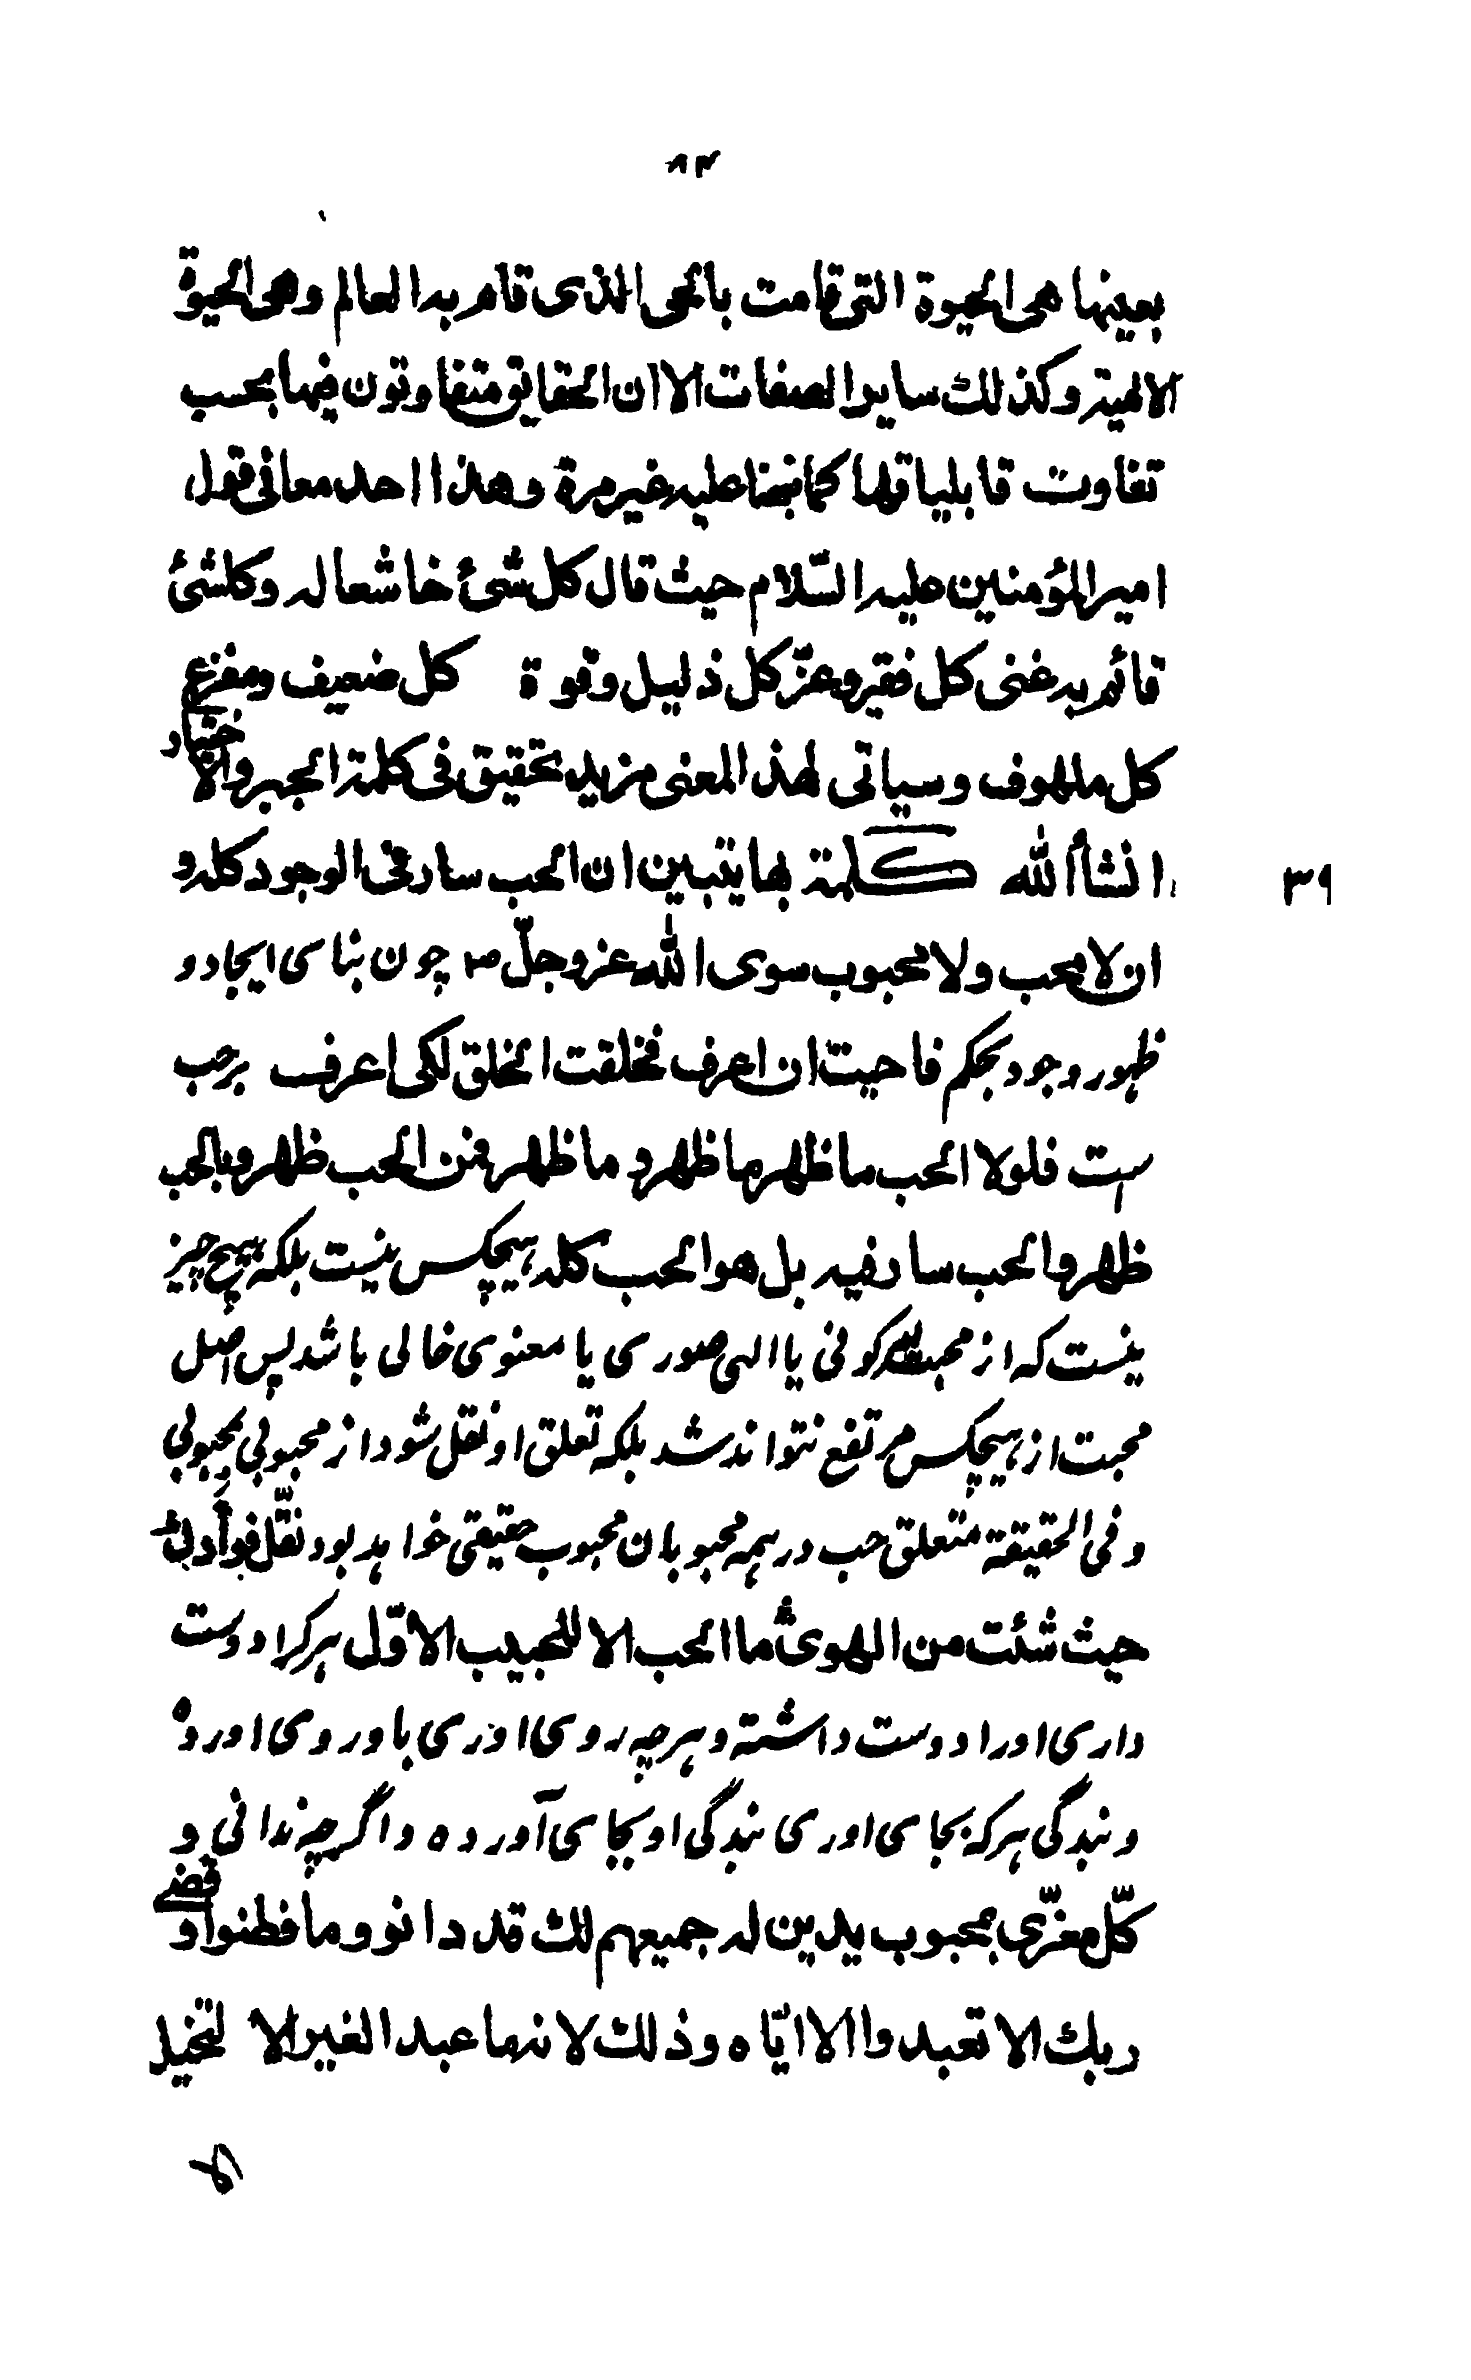 ٨٣
بعينها هى الحيوة التى قامت بالحى الذى قام به العالم وهى الحيوة
الالهية وكذلك ساير الصفات الا ان الحقايق متفاوتون فيها بحسب
تفاوت قابلياتها كما نبهنا عليه غير مرة وهذا احد معانى قول
امير المؤمنين عليه السّلام حيث قال كل شئ خاشعا له وكلشئ
قائم به غنى كل فقير وعزّ كل ذليل وقوة كل ضعيف ومفزع
كل ملهوف وسياتى لهذ المعنى مزيد تحقيق فى كلمة الجبر والاختيار
انشأ الله كلمة بها يتبين ان الحب سار فى الوجود كله و
٣٩
ان لا محب ولا محبوب سوى الله عز وجلّ چون بناى ايجاد و
ظهور وجود بحكم فاحببت ان اعرف فخلقت الخلق لكى اعرف برحب
ست فلولا الحب ما ظهر ما ظهر و ما ظهر فمن الحب ظهر وبالحب
ظهر والحب سار فيه بل هو الحب كله هيچكس نيست بلكه هيچ چيز
نيست كه از محبت كونى يا الهى صورى يا معنوى خالى باشد پس اصل
محبت از هيچكس مرتفع نتواند شد بلكه تعلق او نقل شود از محبوبى بمحبوبى
و فى الحقيقة متعلق حب در همه محبوبان محبوب حقيقى خواهد بود نقّل فوأدك
حيث شئت من الهوى ما الحب الا للحبيب الاوّل هركرا دوست
دارى او را دوست داشته و هرچه روى اورى باو روى اورده
و بندگى هركه بجاى اورى بندگى او بجاى آورده و اگرچه ندانى و
كلّ مغزّى بمحبوب يدين له جميعهم لك قد دانوو ما فطنوا وقضے
ربك الا تعبدوا الا ايّاه وذلك لانهما عبد الغير الا لتخيل